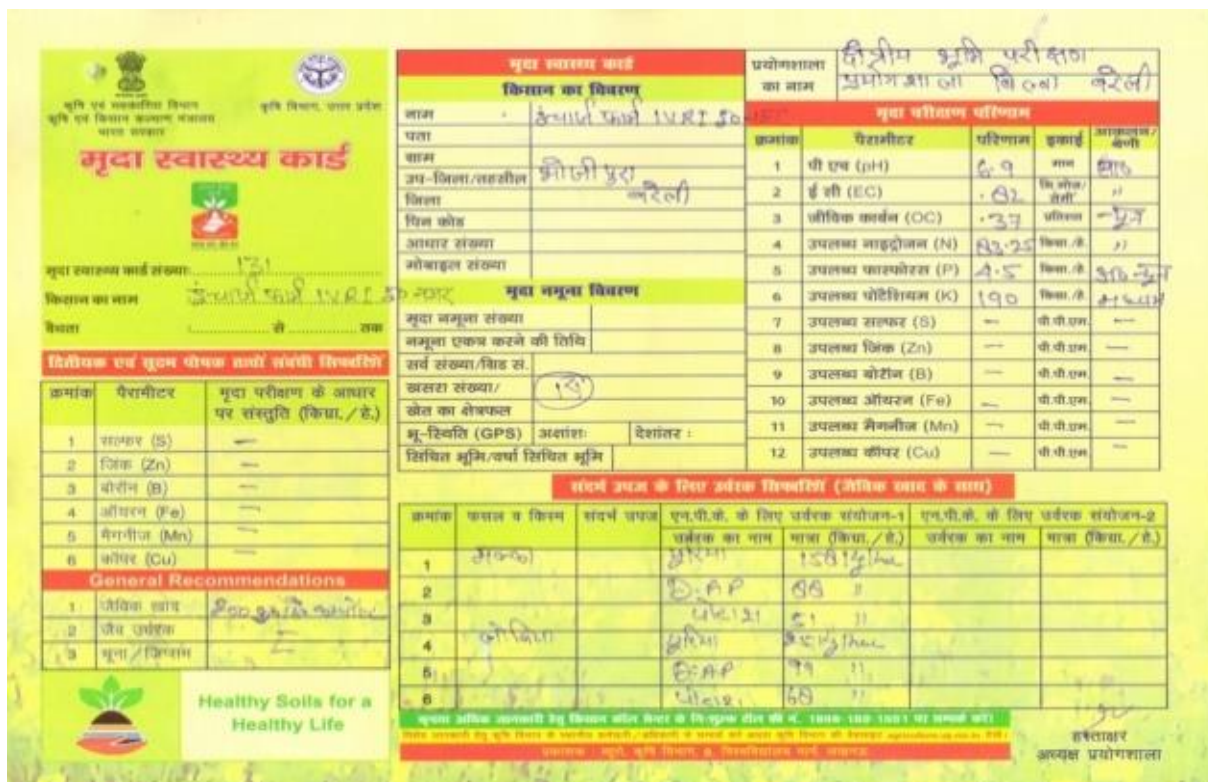 कृषि एवं सहकारिता विभाग
कृषि एवं किसान कल्याण मंत्रालय
भारत सरकार
कृषि विभाग, उत्तर प्रदेश
मृदा स्वास्थ्य कार्ड
मृदा स्वास्थ्य कार्ड संख्या: 131
किसान का नाम फार्म IVRI
वैधता : से तक
द्वितीयक एवं सूक्ष्म पोषक तत्वों संबंधी सिफारिशें
क्रमांक पैरामीटर मृदा परीक्षण के आधार पर संस्तुति (किग्रा./हे.)
1 सल्फर (S) —
2 जिंक (Zn) —
3 बोरॉन (B) —
4 ऑयरन (Fe) —
5 मैगनीज (Mn) —
6 कॉपर (Cu) —
General Recommendations
1 जैविक खाद 200
2 जैव उर्वरक
3 चूना/जिप्सम
Healthy Soils for a
Healthy Life
मृदा स्वास्थ्य कार्ड
किसान का विवरण
नाम फार्म IVRI
पता
ग्राम
उप-जिला/तहसील भोजीपुरा
जिला बरेली
पिन कोड
आधार संख्या
मोबाइल संख्या
मृदा नमूना विवरण
मृदा नमूना संख्या
नमूना एकत्र करने की तिथि
सर्वे संख्या/ग्रिड सं.
खसरा संख्या/
खेत का क्षेत्रफल
भू-स्थिति (GPS) अक्षांश: देशांतर :
सिंचित भूमि/वर्षा सिंचित भूमि
प्रयोगशाला का नाम क्षेत्रीय भूमि परीक्षण
प्रयोगशाला बरेली
मृदा परीक्षण परिणाम
क्रमांक पैरामीटर परिणाम इकाई आकलन/श्रेणी
1 पी एच (pH) 6.9 मान
2 ई सी (EC)
3 जैविक कार्बन (OC) .37 प्रतिशत न्यून
4 उपलब्ध नाइट्रोजन (N) किग्रा./हे. "
5 उपलब्ध फास्फोरस (P) 4.5 किग्रा./हे. अति न्यून
6 उपलब्ध पोटैशियम (K) 190 किग्रा./हे. मध्यम
7 उपलब्ध सल्फर (S) — पी.पी.एम. —
8 उपलब्ध जिंक (Zn) — पी.पी.एम. —
9 उपलब्ध बोरॉन (B) — पी.पी.एम. —
10 उपलब्ध ऑयरन (Fe) — पी.पी.एम. —
11 उपलब्ध मैगनीज (Mn) — पी.पी.एम. —
12 उपलब्ध कॉपर (Cu) — पी.पी.एम. —
संदर्भ उपज के लिए उर्वरक सिफारिशें (जैविक खाद के साथ)
क्रमांक फसल व किस्म संदर्भ उपज एन.पी.के. के लिए उर्वरक संयोजन-1 एन.पी.के. के लिए उर्वरक संयोजन-2
उर्वरक का नाम मात्रा (किग्रा./हे.) उर्वरक का नाम मात्रा (किग्रा./हे.)
1 मक्का यूरिया
2 D.AP "
3 पोटाश 51 "
4 यूरिया
5 D.AP "
6 पोटाश "
हस्ताक्षर
अध्यक्ष प्रयोगशाला